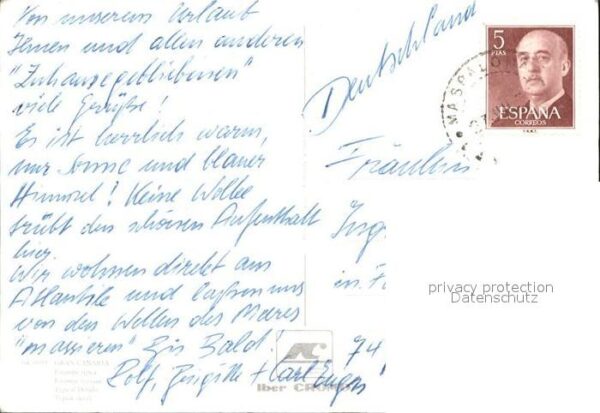 Von unserem Urlaub
Ihnen und allen anderen
"Zuhausegebliebenen"
viele Grüße!
Es ist herrlich warm,
nur Sonne und blauer
Himmel! Keine Wolke
trübt den schönen Aufenthalt
hier.
Wir wohnen direkt am
Atlantik und lassen uns
von den Wellen des Meeres
"massieren" Bis bald!
Rolf, Brigitte + Karl
Deutschland
Fräulein
Ing
in
74
5
PTAS
ESPAÑA
CORREOS
MASPALO
privacy protection
Datenschutz
GRAN CANARIA
Iber